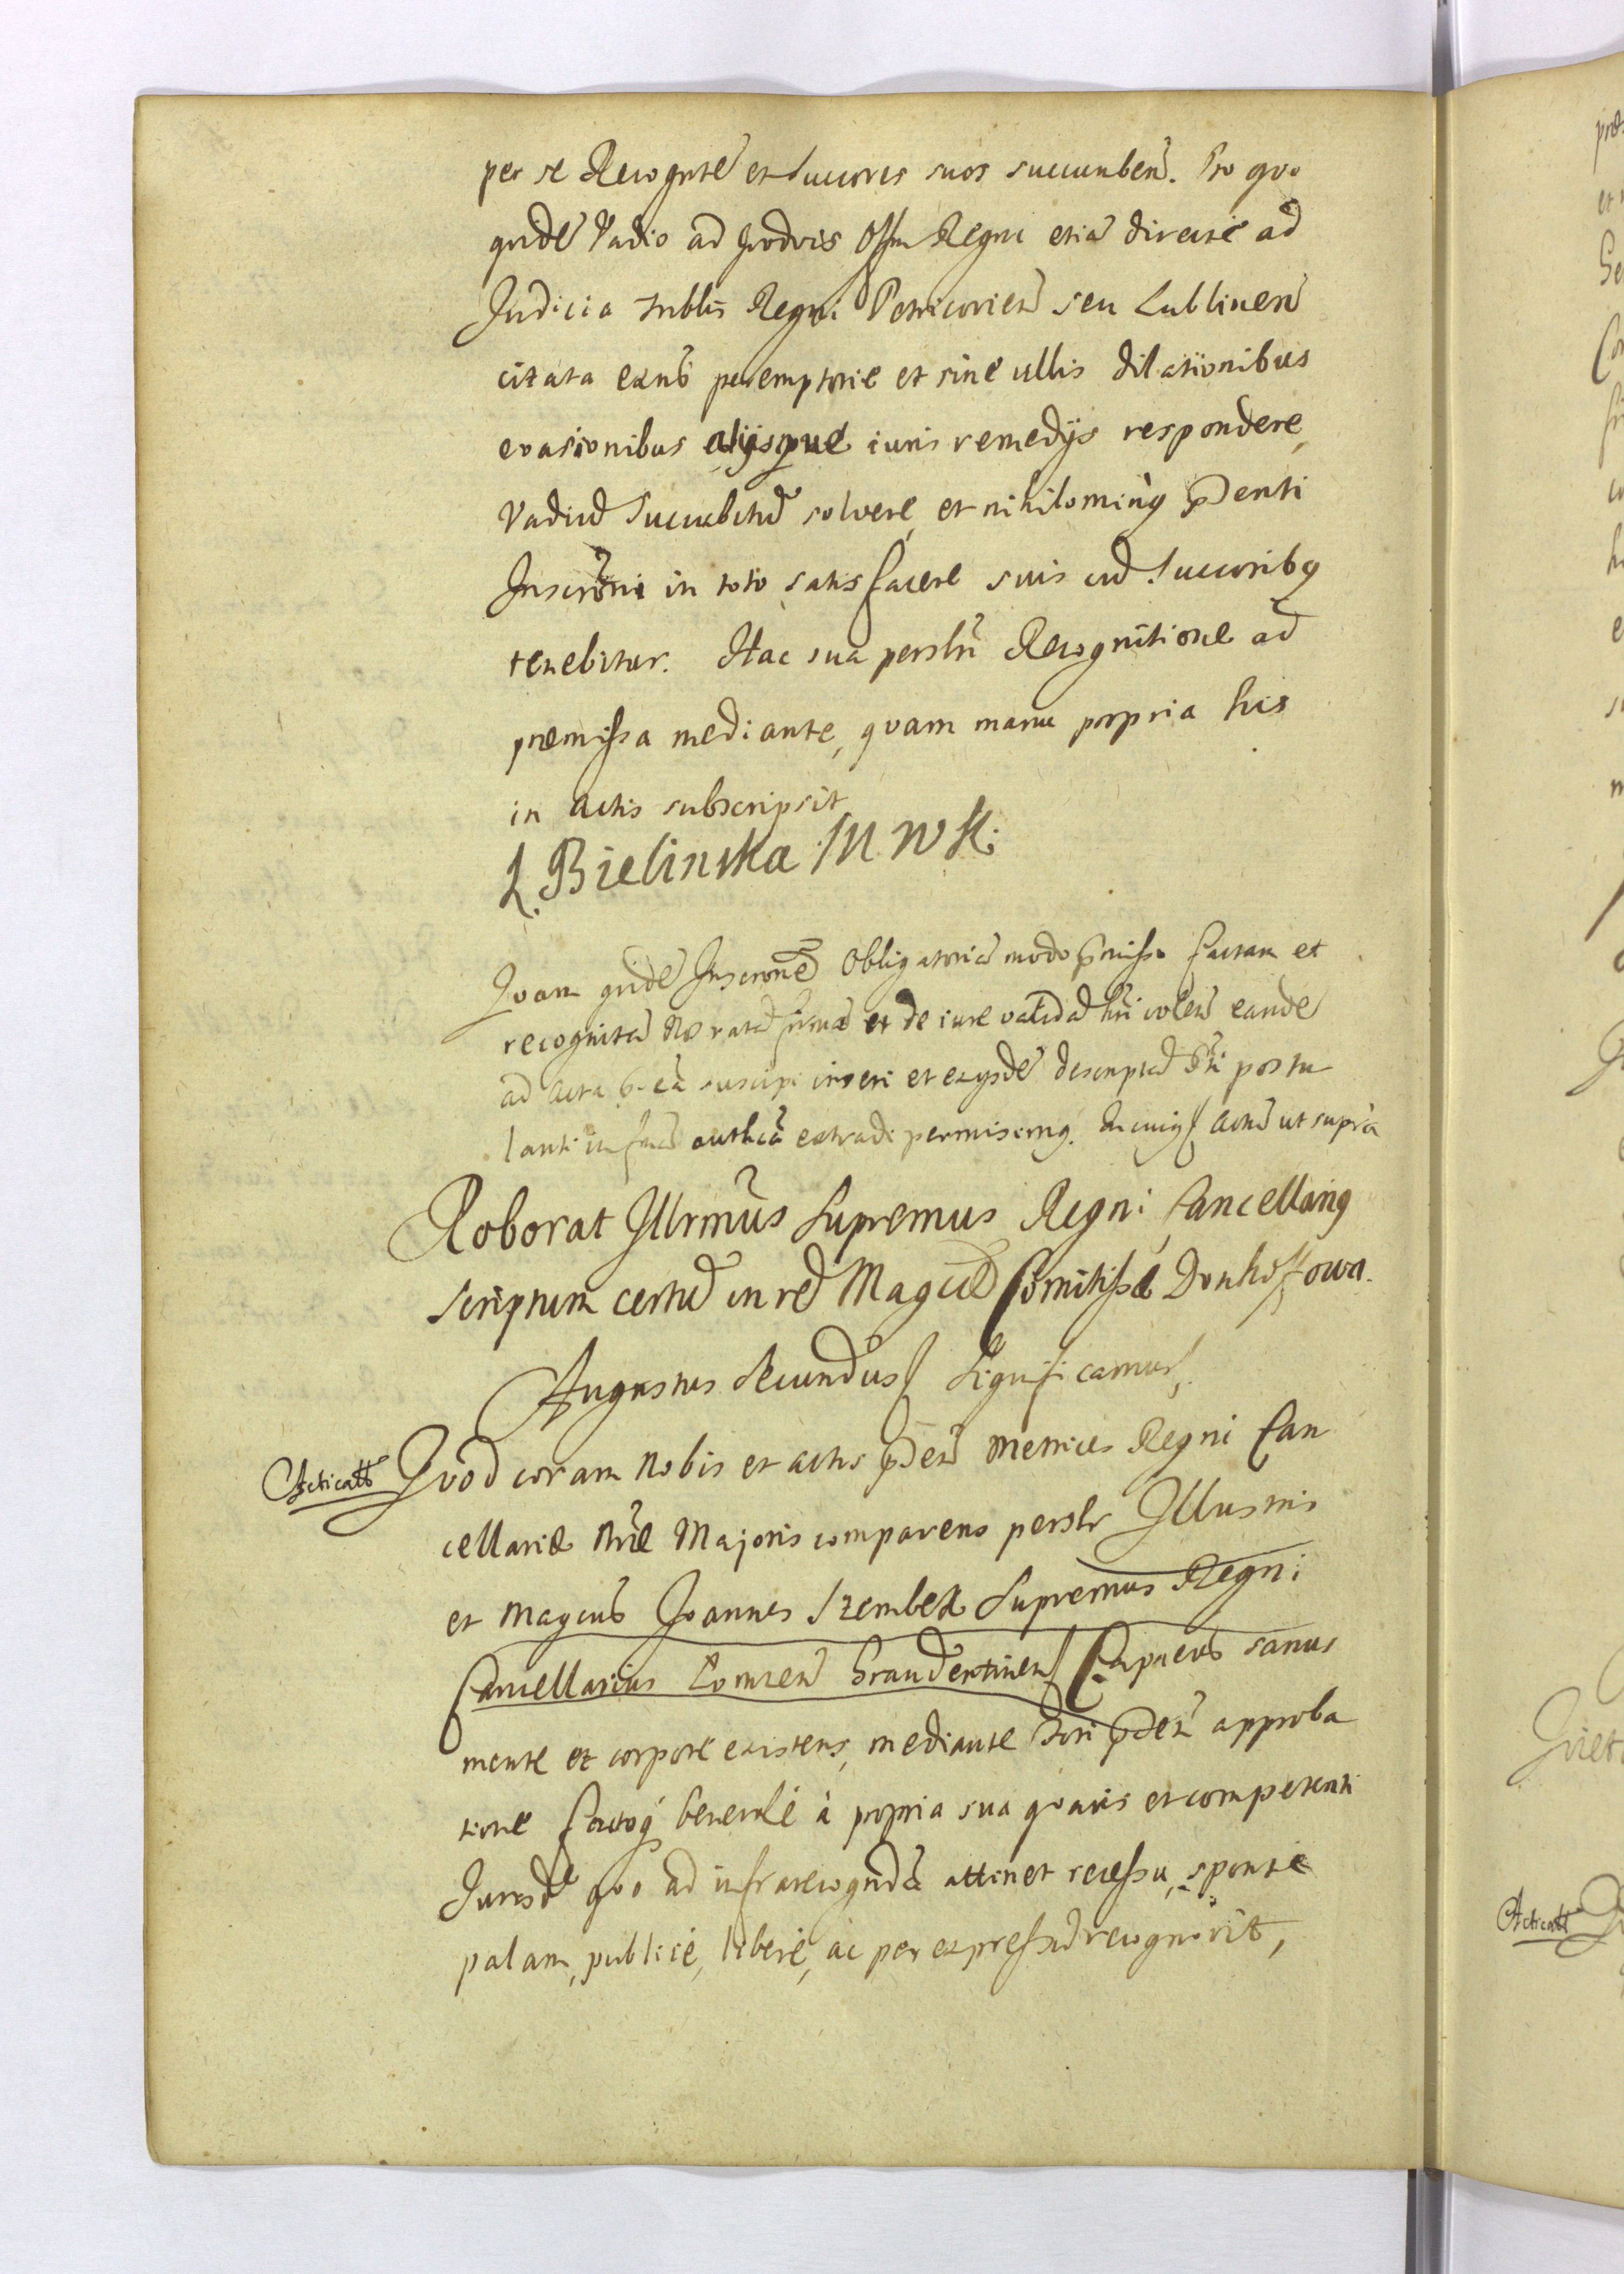 per se Recognte et Succores suos succumben. Pro quo
quide Vadio ad quodvis Offm Regni etia directe ad
Judicia Trublis Regni Petricovien seu Lublinen
citata exns peremptorie et sine ullis dilationibus
evasionibus alijsque iuris remedijs respondere,
Vadiu Succubitu solvere, et nihilominq pdenti
Inscroni in toto satisfacere suis cu Succoribq
tenebitur. Hac sua perslri Recognitione ad
præmissa mediante, quam manu propria his
in actis subscripsit
L. Bielinska M W K.
Quam quide Inscrone Obligatoria modo pmisso factam et
recognita Nos rata firma et de iure valida hri volen eande
ad acta suscipi inseri et exijsde descripta pti postu
lanti in autca extradi permisimq. In cuiq Actu ut supra
Roborat Illrmus Supremus Regni Cancellariq
scriptum certu in re Magcæ Comitissæ Donhoffowa.
Augustus Secundus Significamus,
Acticatt Quod coram Nobis et actis pden Metrices Regni Can
cellariæ Nræ Majoris comparens perslr Illustris
et Magcus Joannes Szembek Supremus Regni
Cancellarius Lomzen Graudentinen Capneus sanus
mente et corpore existens, mediante fori pden approba
tione factoq generale à propria sua quavis et competenti
Jurisde quo ad infrarecognda attinet recessu, sponte
palam, publice, libere, ac per expressu recognovit,
Acticatt